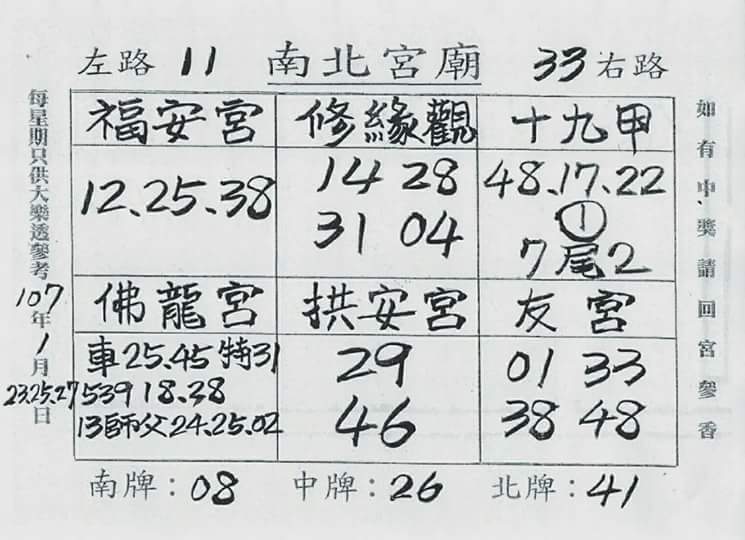 左路 11 南北宮廟 33 右路
每星期只供大樂透參考
107年1月23.25.27日
福安宮 修緣觀 十九甲
12.25.38
14 28
31 04
48.17.22
①
7尾2
佛龍宮 拱安宮 友宮
車25.45 特31
539 18.38
13師父24.25.02
29
46
01 33
38 48
如有中獎請回宮參香
南牌：08 中牌：26 北牌：41